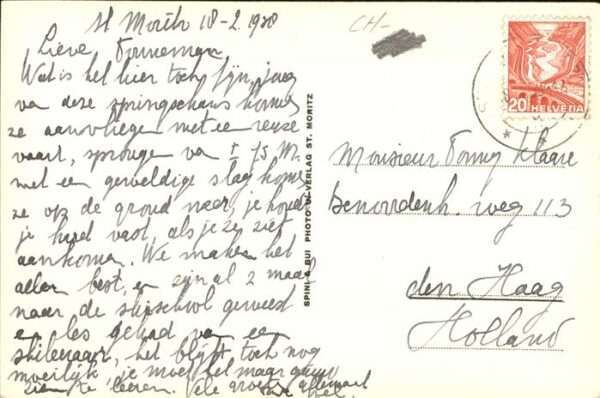 St Moritz 18-2. 1938
CH-
Lieve,
Wat is het hier toch fijn, jaag
van deze springschans komen
ze aanvliegen met een reuze
vaart, sprongen van ± 75 M.
met een geweldige slag komen
ze op de grond neer, je houdt
je hart vast, als je ze ziet
aankomen. We maken het
allen best, en zijn al 2 maal
naar de skischool geweest
en les gehad van een
skileraar, het blijft toch nog
moeilijk, je moet het maar gauw
zien te leeren. Vele groeten allemaal
20 HELVETIA
SPINI & BUI PHOTO-VERLAG ST. MORITZ
Monsieur Tonny Klaare
Benoordenh. weg 113
den Haag
Holland